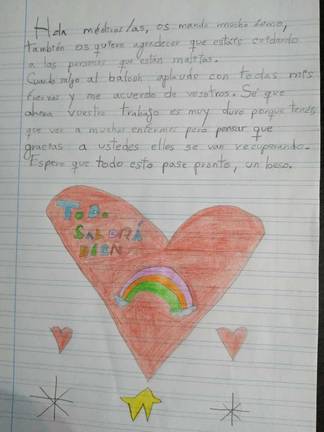 Hola médicos/as, os mando mucho ánimo,
también os quiero agradecer que estéis cuidando
a las personas que están malitas.
Cuando salgo al balcón aplaudo con todas mis
fuerzas y me acuerdo de vosotros. Sé que
ahora vuestro trabajo es muy duro porque tenéis
que ver a muchos enfermos pero pensar que
gracias a ustedes ellos se van recuperando.
Espero que todo esto pase pronto, un beso.
TODO
SALDRÁ
BIEN